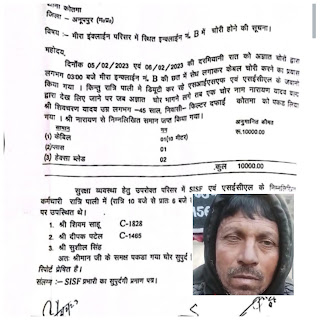 थाना कोतमा
जिला – अनूपपुर (म०प्र०)
विषय :– मीरा इंक्लाईन परिसर में स्थित इन्क्लाईन नं. B में चोरी होने की सूचना।
महोदय,
दिनाँक 05/02/2023 एवं 06/02/2023 की दरमियानी रात को अज्ञात चोरों द्वारा
लगभग 03:00 बजे मीरा इन्क्लाईन नं. B की छत में सेंध लगाकर केबल चोरी करने का प्रयास
किया गया। किन्तु रात्रि पाली में डियुटी कर रहे एसआईएसएफ एवं एसईसीएल के जवानों
द्वारा देख लिए जाने पर जब अज्ञात चोर भागने लगे तब एक चोर नाम नारायण यादव
श्री शिवचरण यादव उम्र लगभग –45 साल, निवासी– फिल्टर दफाई कोतमा को पकड़ लिया
गया। श्री नारायण से निम्नलिखित समान जप्त किया गया।
सामान मात्रा अनुमानित कीमत
(1) केबिल 01(10 मीटर) रु.10000.00
(2) प्लास 01
(3) हेक्सा ब्लेड 02
कुल 10000.00
सुरक्षा व्यवस्था हेतु उपरोक्त परिसर में SISF एवं एसईसीएल के निम्नलिखित
कर्मचारी रात्रि पाली में (रात्रि 10 बजे से प्रातः 6 बजे
पर उपस्थित थे।
1. श्री शिवम साहू C-1828
2. श्री दीपक पटेल C-1465
3. श्री सुशील सिंह
अतः श्रीमान जी के समक्ष पकड़ा गया चोर सुपुर्द
रिपोर्ट प्रेषित है।
संलग्न :– SISF प्रभारी का सुपुर्दगी प्रमाण पत्र।